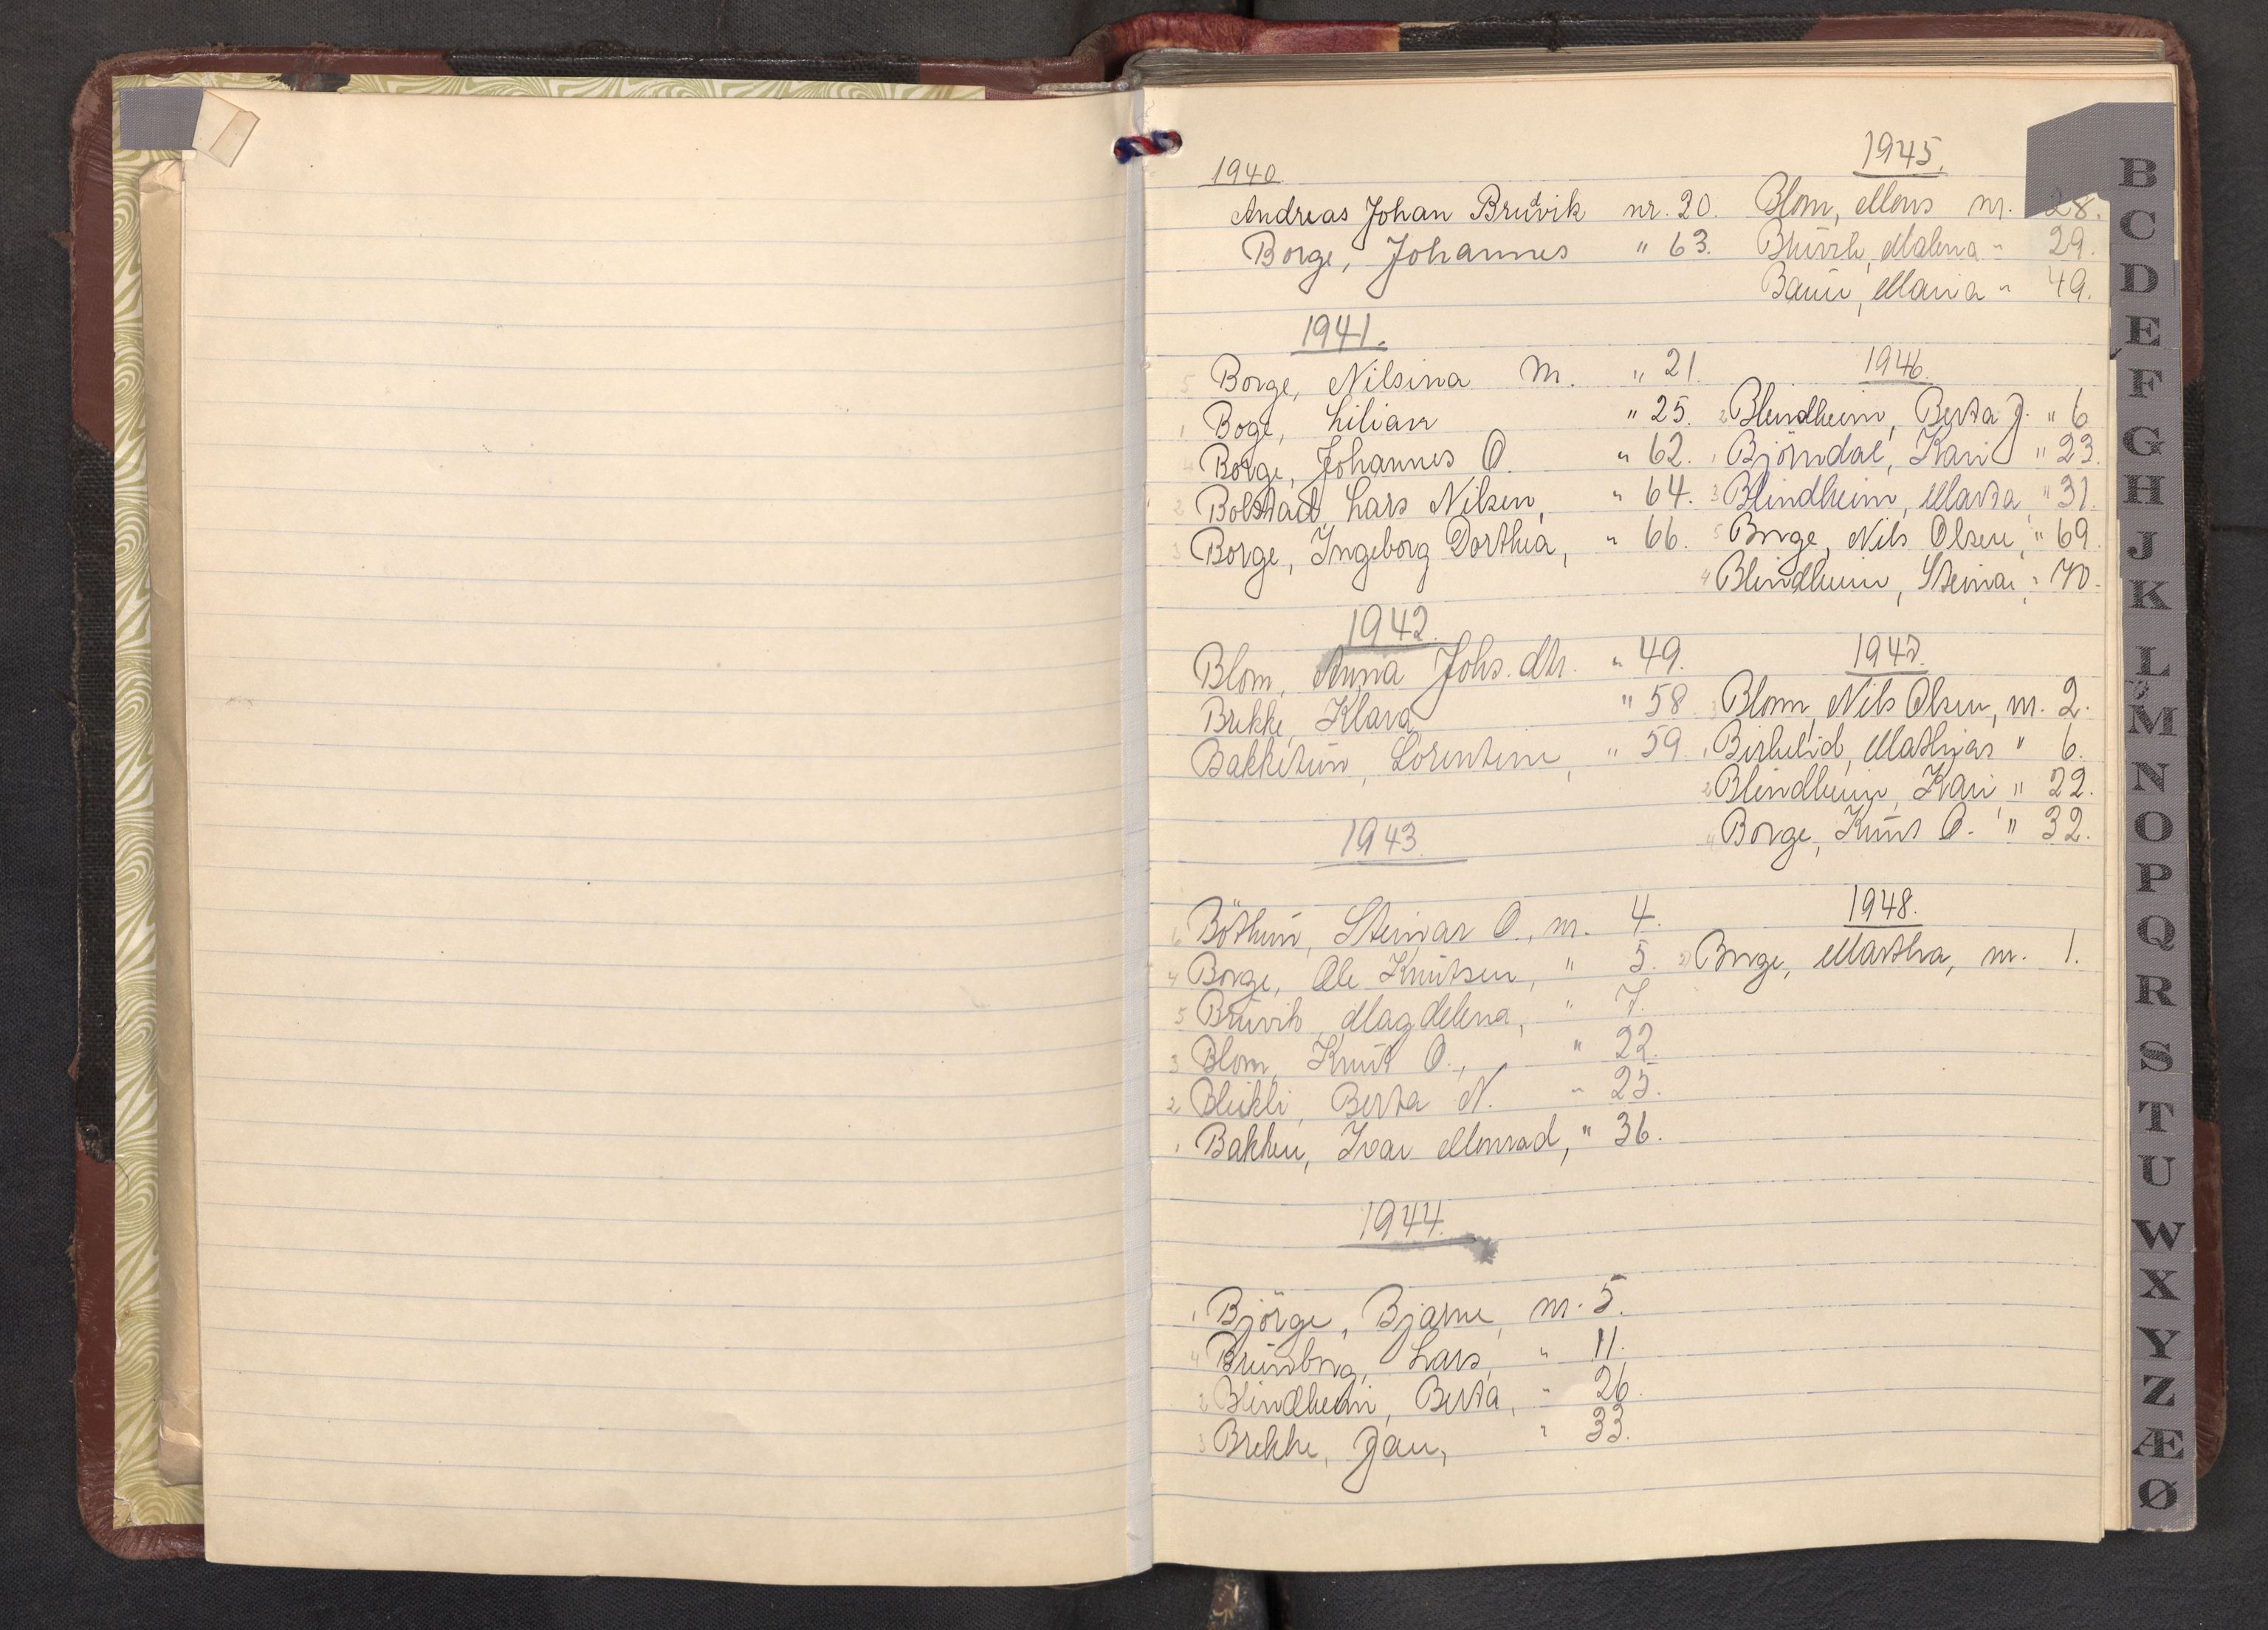 1940.
Andreas Johan Bruvik nr. 20.
Borge, Johannes " 63.
1941.
5 Borge, Nilsina M. " 21.
1 Boge, Lilian " 25.
4 Borge, Johannes O. " 62.
2 Bolstad, Lars Nilsen, " 64.
3 Borge, Ingeborg Dorthea, " 66.
1942.
Blom, Anna Johs. dtr. " 49.
Brekke, Klara " 58
Bakketun, Lorentene, " 59.
1943.
6 Böthun, Steinar O., nr. 4.
4 Borge, Ole Knutsen, " 5.
5 Bruvik, Magdelena, " 7.
3 Blom, Knut O., " 22.
2 Bleikli, Berta N. " 25.
1 Bakken, Ivar Monrad, " 36.
1944.
1 Björge, Bjarne, nr. 5.
4 Brunborg, Lars, " 11.
2 Blindheim, Berta, " 26.
3 Brekke, Jan, " 33.
1945.
Blom, Mons nr. 28.
Malena " 29.
Maria " 49.
1946.
2 Blindheim, Berta J. " 6
1 Björndal, Kari " 23.
3 Blindheim, Marta, " 31.
5 Borge, Nils Olsen, " 69.
4 Blindheim, Steinar, " 70.
1947.
3 Blom, Nils Olsen, nr. 2.
1 Birkelid, Mathias " 6.
2 Blindheim, Kari " 22.
4 Borge, Knut O. " 32.
1948.
Borge, Martha, nr. 1.
B
C
D
E
F
G
H
J
K
L
M
N
O
P
Q
R
S
T
U
W
X
Y
Z
Æ
Ø